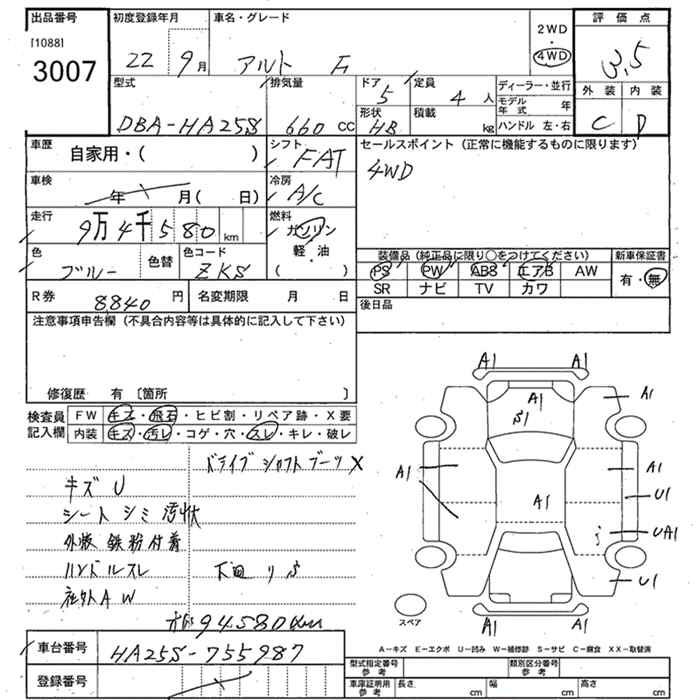 出品番号 [1088] 3007
初度登録年月 22 9月
車名・グレード アルト F
2WD・4WD
評価点 3.5
外装 C 内装 D
型式 DBA-HA25S
排気量 660 cc
ドア 5
形状 HB
定員 4人
積載 kg
ディーラー・並行
モデル年式 年
ハンドル 左・右
車歴 自家用・( )
シフト FAT
セールスポイント (正常に機能するものに限ります)
4WD
車検 年 月( 日)
冷房 A/C
走行 9万4千580 km
燃料 ガソリン 軽・油 ( )
色 ブルー 色替
色コード ZKS
装備品 (純正品に限り○をつけてください) 新車保証書
PS PW ABS エアB AW 有・無
SR ナビ TV カワ
R券 8840円
名変期限 月 日
後日品
注意事項申告欄 (不具合内容等は具体的に記入して下さい)
修復歴 有 [箇所 ]
検査員記入欄
FW キズ・飛石・ヒビ割・リペア跡・X要
内装 キズ・汚レ・コゲ・穴・スレ・キレ・破レ
ドライブシャフトブーツX
キズ U
シート シミ 汚状
外板 鉄粉付着
ハンドルスレ
下回 リS
社外AW
94580km
A1 A1
A1 A1
S1
A1 A1
A1 U1
UA1
U1
A1 A1
スペア
A-キズ E-エクボ U-凹み W-補修跡 S-サビ C-腐食 XX-取替済
車台番号 HA25S-755987
登録番号
型式指定番号 参考
類別区分番号 参考
車庫証明用 参考 長さ cm 幅 cm 高さ cm